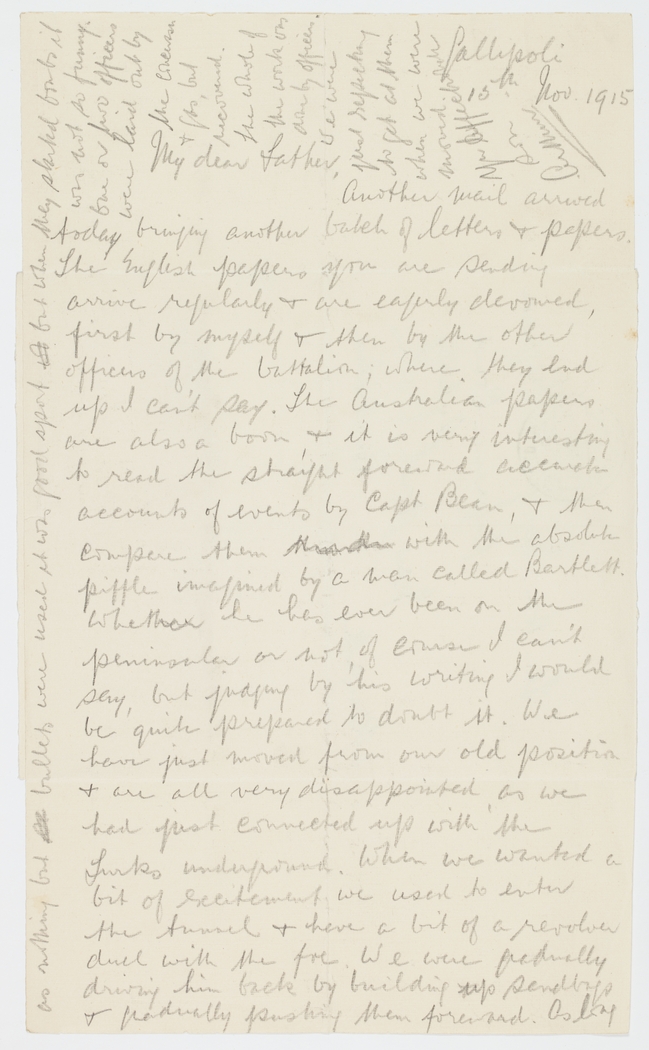 Gallipoli
15th Nov. 1915
My dear Father,
Another mail arrived
today bringing another batch of letters & papers.
The English papers you are sending
arrive regularly & are eagerly devoured,
first by myself & then by the other
officers of the battalion; where they end
up I can't say. The Australian papers
are also a boon, & it is very interesting
to read the straight foreward accurate
accounts of events by Capt Bean, & then
compare them with the absolute
piffle imagined by a man called Bartlett.
Whether he has ever been on the
peninsular or not, of course I can't
say, but judging by his writing I would
be quite prepared to doubt it. We
have just moved from our old position
& are all very disappointed as we
had just connected up with the
Turks underground. When we wanted a
bit of excitement we used to enter
the tunnel & have a bit of a revolver
duel with the foe. We were gradually
driving him back by building up sandbags
& gradually pushing them foreward. As long
as nothing but bullets were used it was good sport but when they started bombs it
was not so funny.
One or two officers
were laid out by
the concussion
& gas, but
recovered.
The whole of
the work was
done by officers.
We were
just expecting
to get at them
when we were
moved.
Your Affect
son